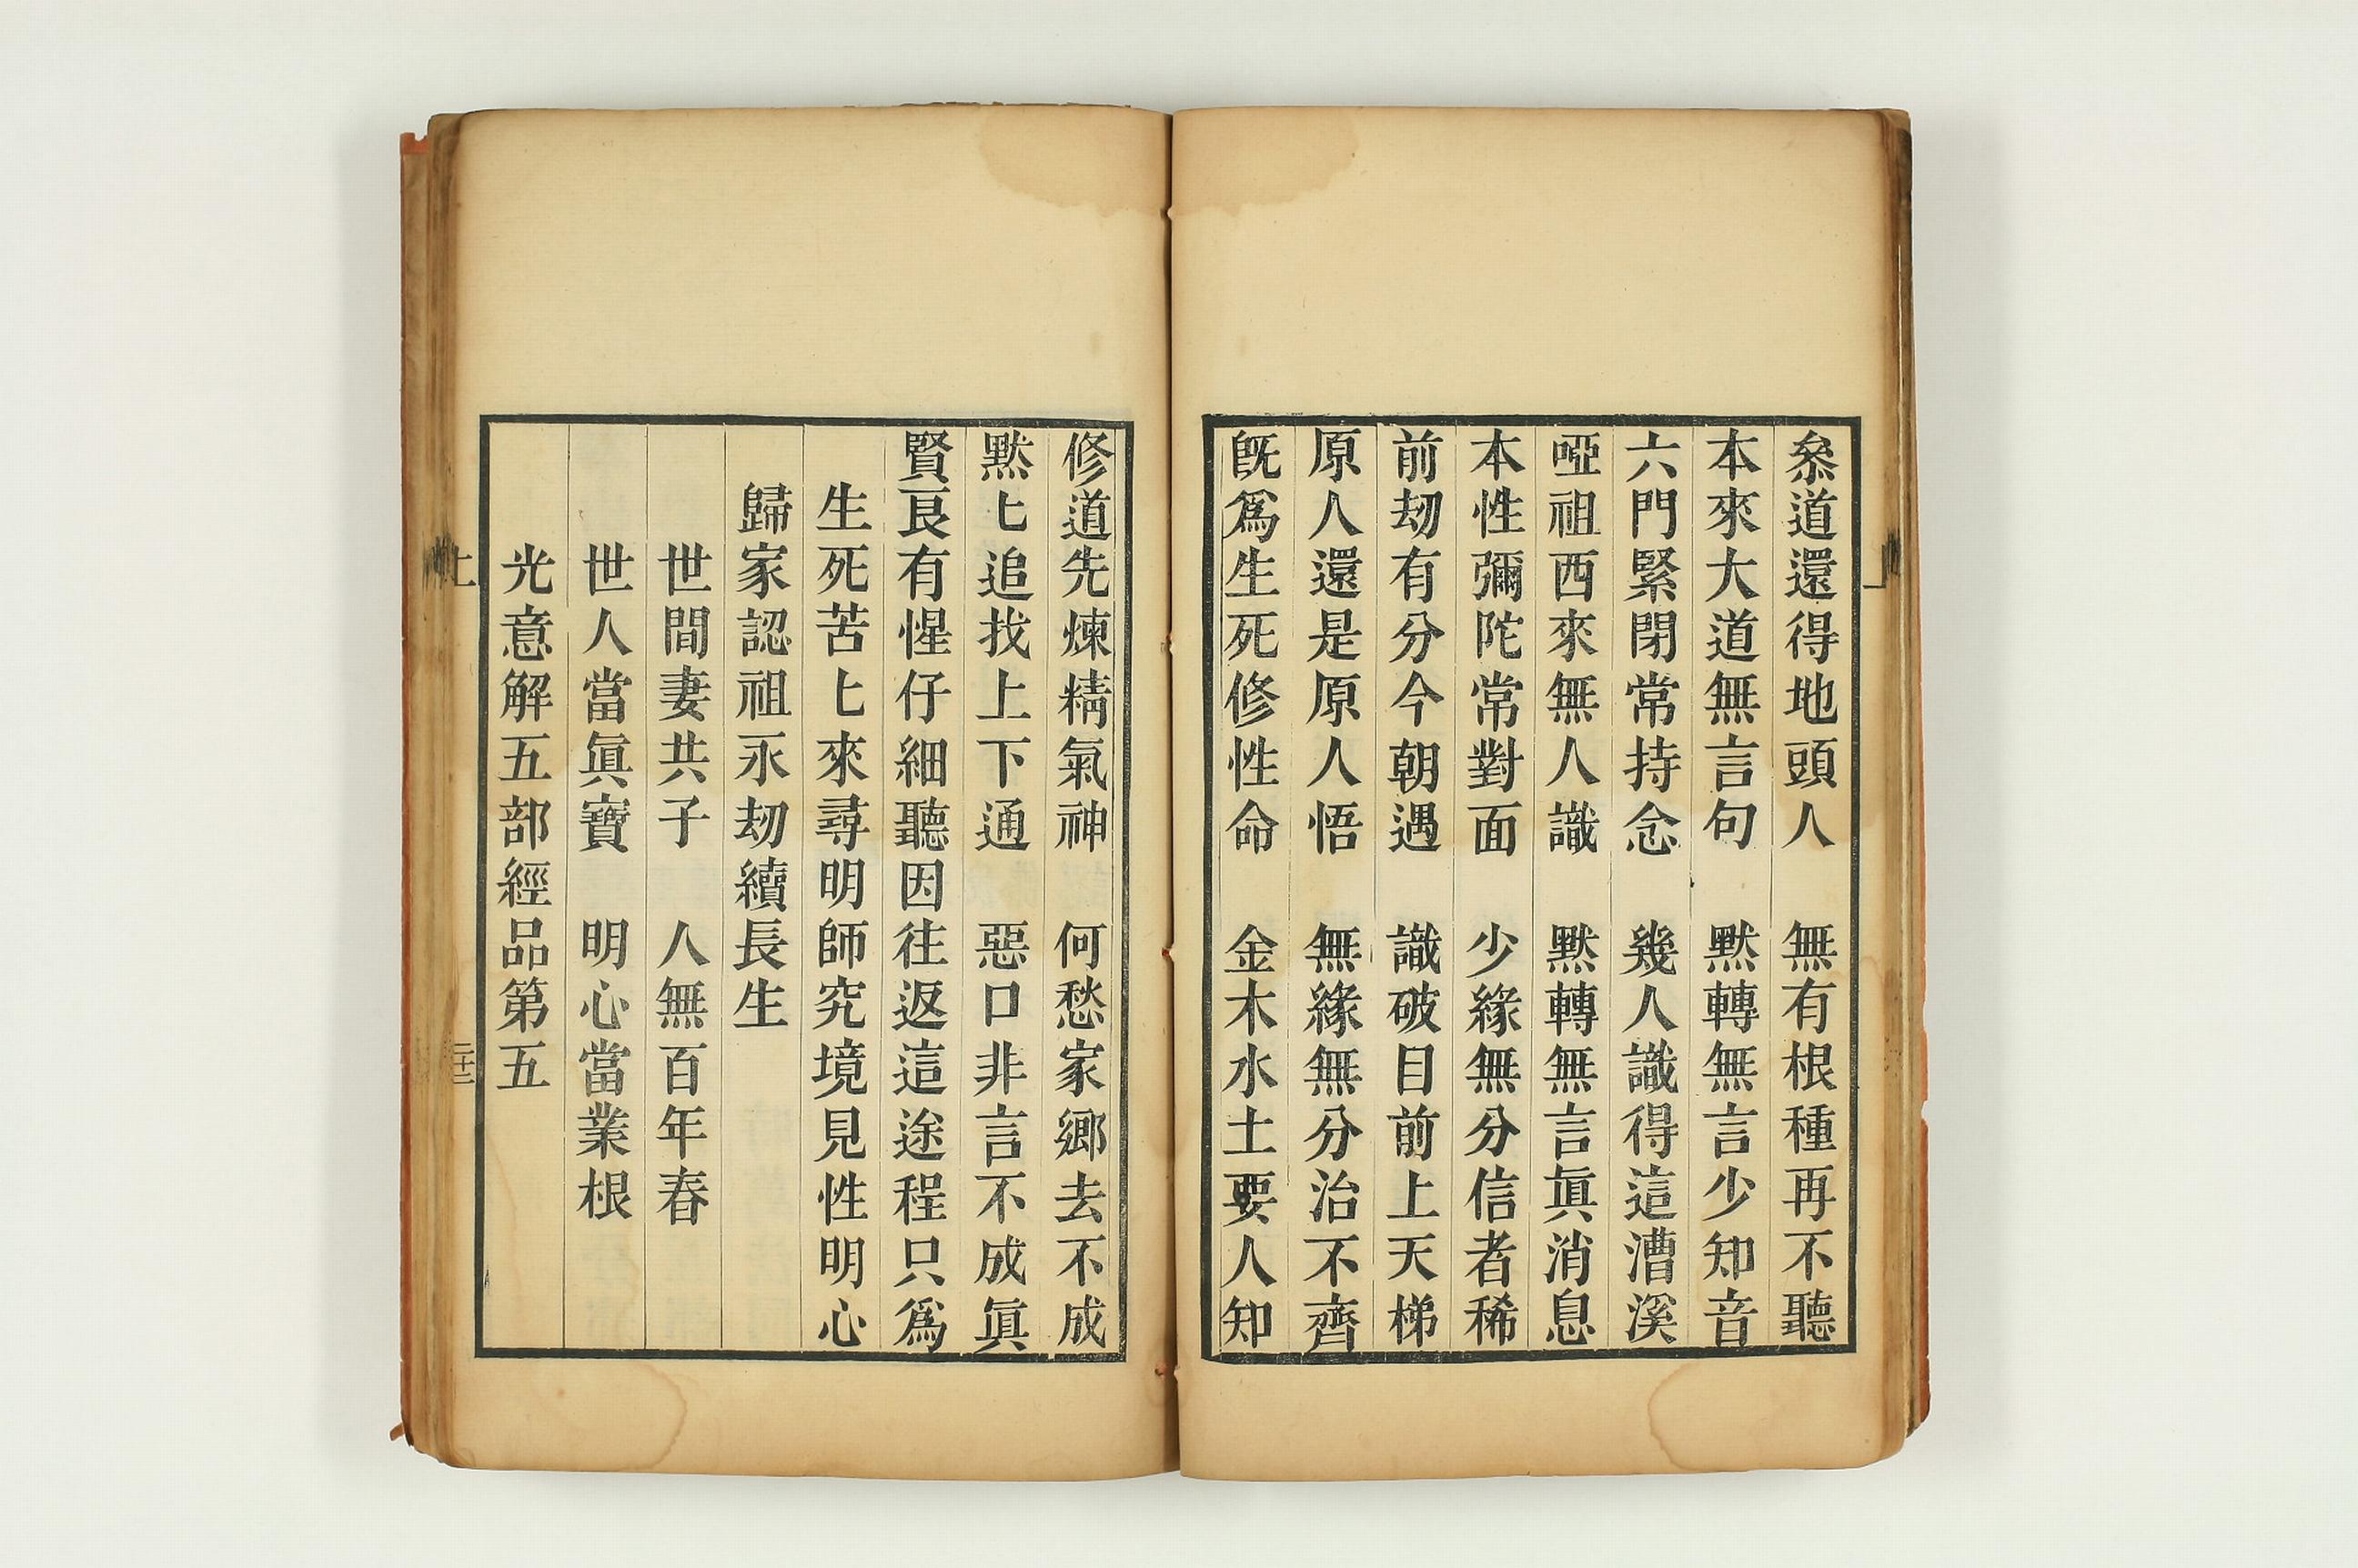 叅道還得地頭人　無有根種再不聽
本來大道無言句　默轉無言少知音
六門緊閉常持念　幾人識得這漕溪
啞祖西來無人識　默轉無言眞消息
本性彌陀常對面　少緣無分信者稀
前刼有分今朝遇　識破目前上天梯
原人還是原人悟　無緣無分治不齊
旣爲生死修性命　金木水土要人知
修道先煉精氣神　何愁家鄉去不成
默〻追找上下通　惡口非言不成眞
賢良有惺仔細聽因往返這途程只爲
生死苦〻來尋明師究境見性明心
歸家認祖永刼續長生
世間妻共子　人無百年春
世人當眞寶　明心當業根
光意解五部經品第五
上
二十二